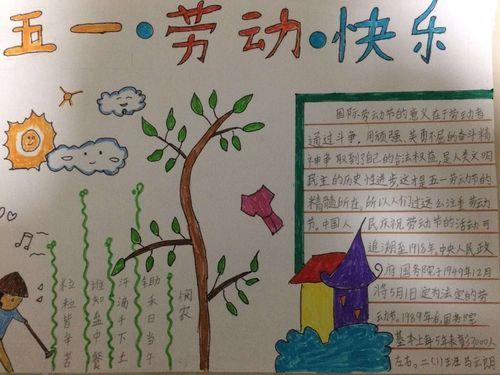 五一·劳动·快乐
悯农
锄禾日当午
汗滴禾下土
谁知盘中餐
粒粒皆辛苦
国际劳动节的意义在于劳动者
通过斗争，用顽强、英勇不屈的奋斗精
神争取到了自己的合法权益，是人类文明
民主的历史性进步这才是五一劳动节的
精髓所在，所以人们过这么注重劳动
节。中国人民庆祝劳动节的活动可
追溯至1918年，中央人民政
府国务院于1949年12月
将5月1日定为法定的劳
动节。1989年后，国务院
基本上每5年表彰3000人
左右。二(1)班